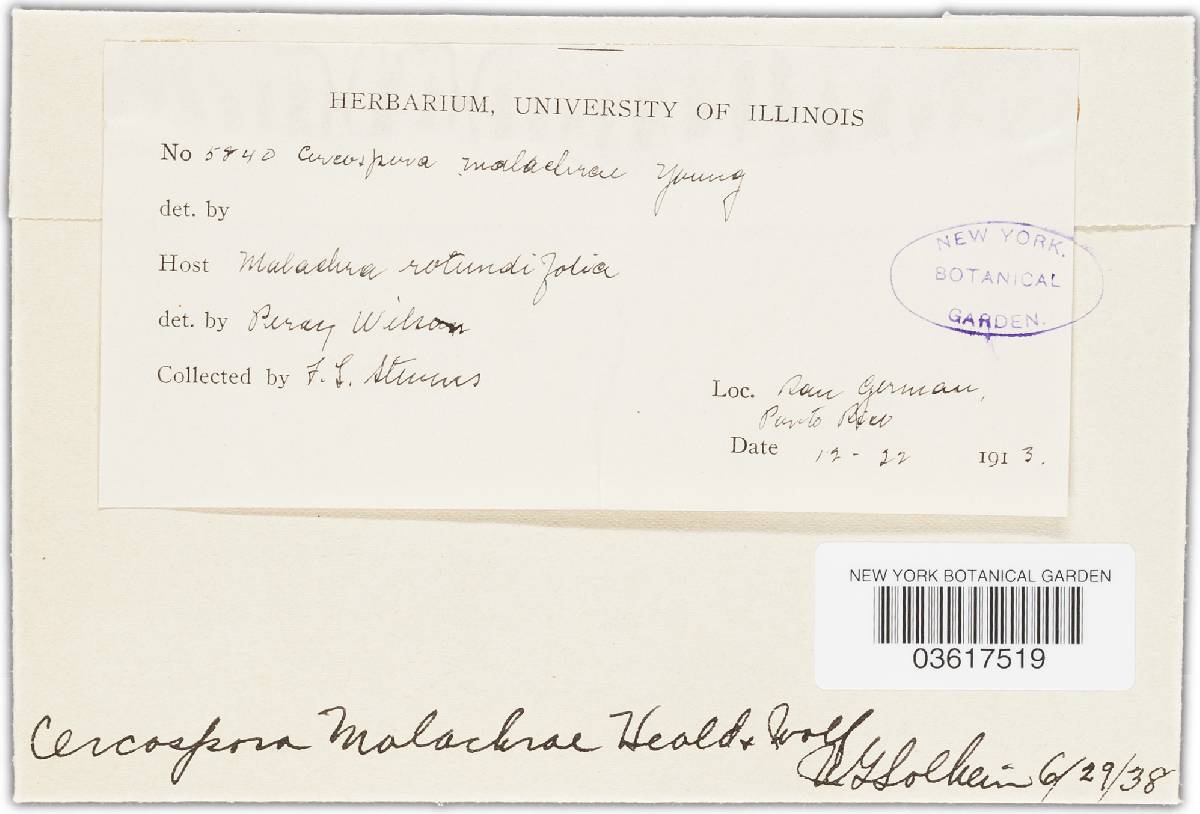 HERBARIUM, UNIVERSITY OF ILLINOIS
No 5840 Cercospora malachrae Young
det. by
Host Malachra rotundifolia
det. by Percy Wilson
Collected by F. L. Stevens
Loc. San German,
Porto Rico
Date 12-22 1913.
NEW YORK.
BOTANICAL
GARDEN.
NEW YORK BOTANICAL GARDEN
03617519
Cercospora Malachrae Heald & Wolf
WGSolheim 6/29/38